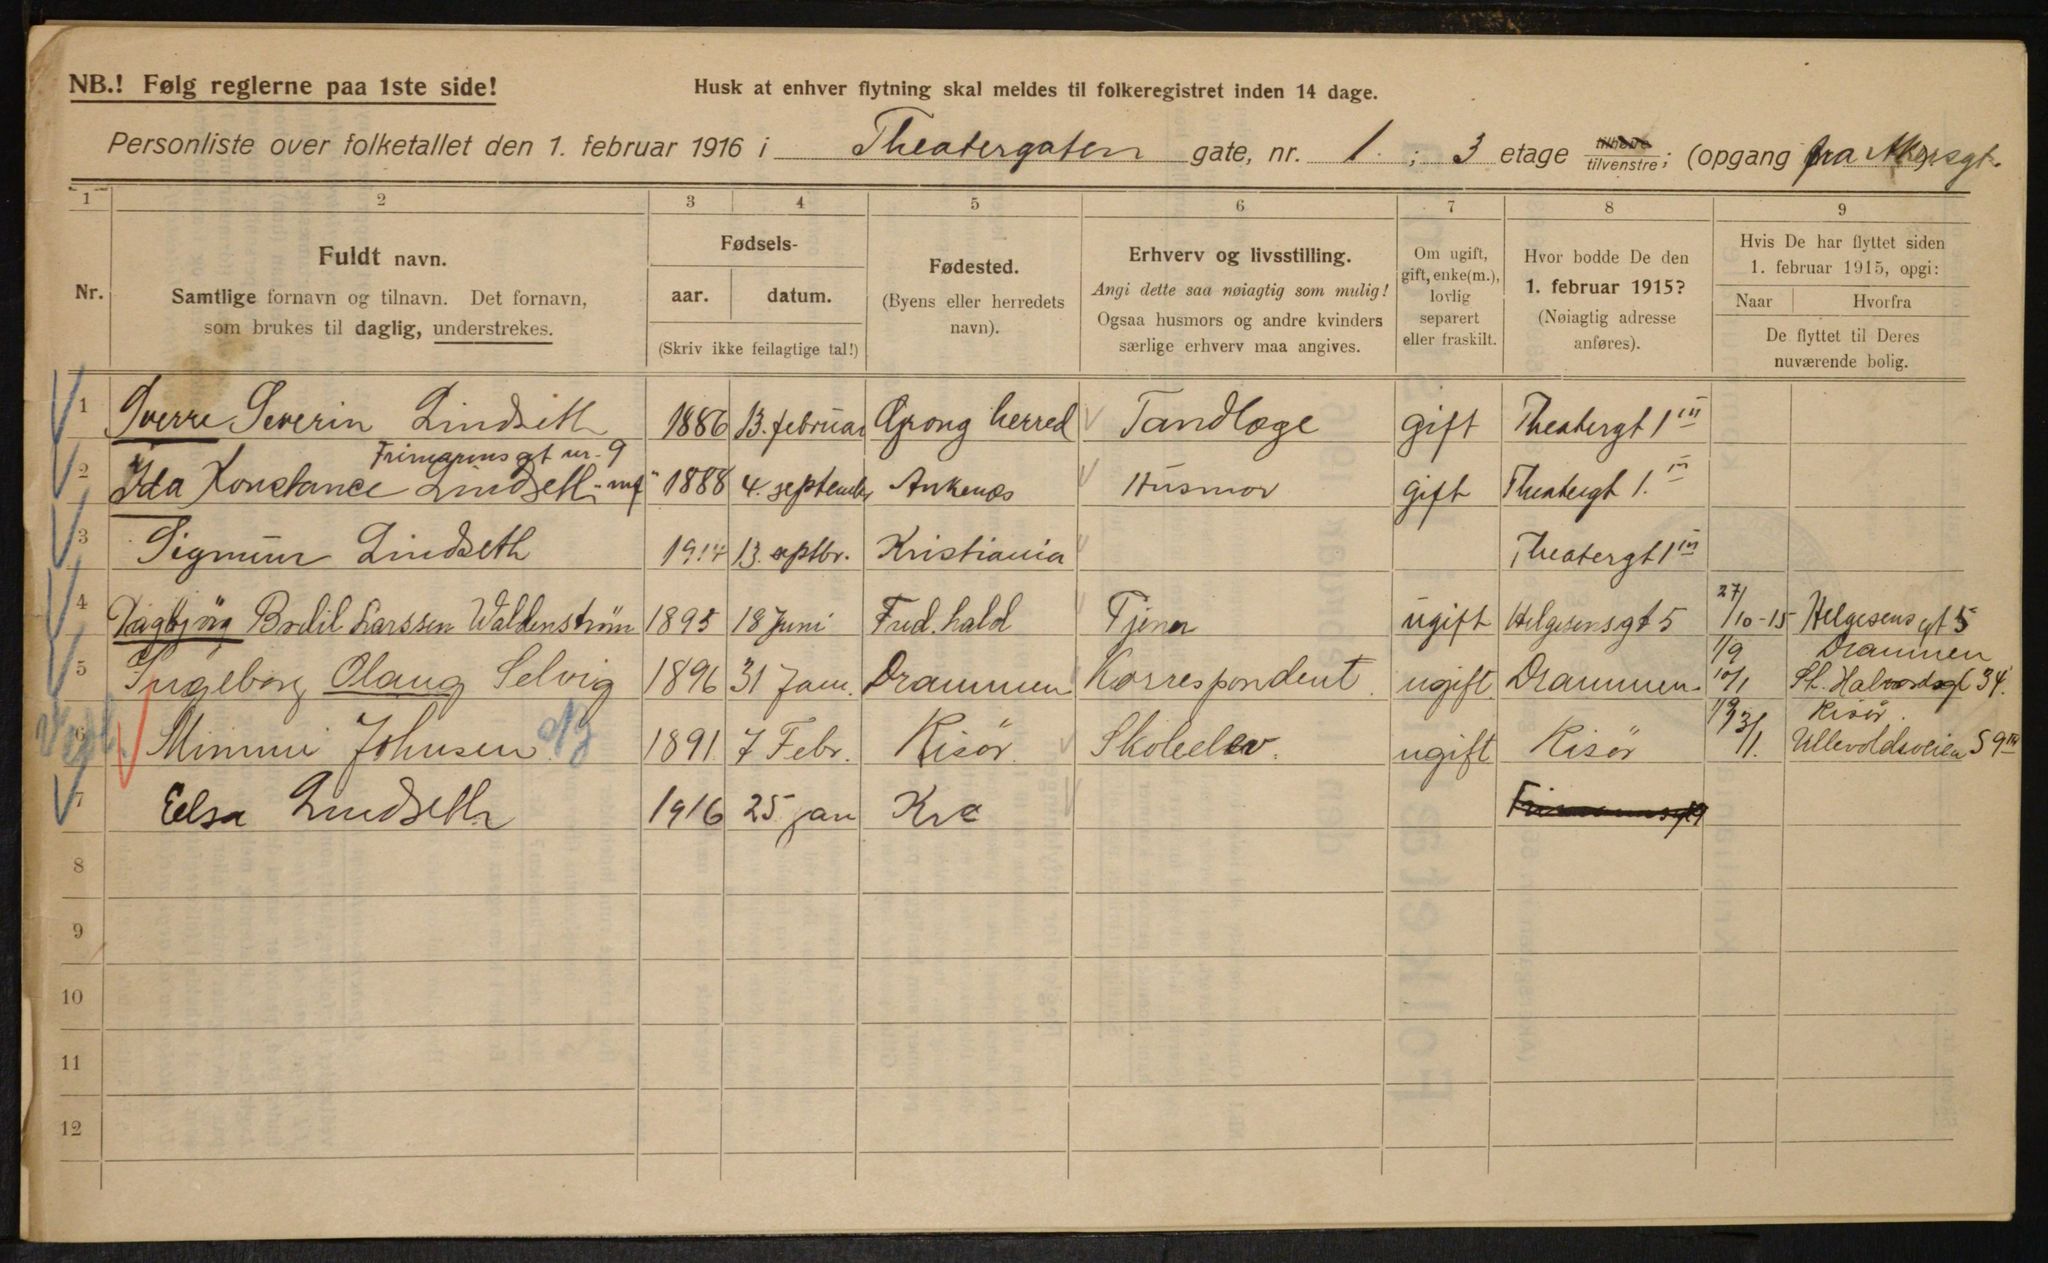 NB.! Følg reglerne paa 1ste side!
Husk at enhver flytning skal meldes til folkeregistret inden 14 dage.
Personliste over folketallet den 1. februar 1916 i Theatergaten gate, nr. 1. ; 3 etage tilhøire tilvenstre; (opgang fra Akersgt.
1 2 3 4 5 6 7 8 9
Nr.
Fuldt navn.
Samtlige fornavn og tilnavn. Det fornavn,
som brukes til daglig, understrekes.
Fødsels-
aar. datum.
(Skriv ikke feilagtige tal!)
Fødested.
(Byens eller herredets
navn).
Erhverv og livsstilling.
Angi dette saa nøiagtig som mulig!
Ogsaa husmors og andre kvinders
særlige erhverv maa angives.
Om ugift,
gift, enke(m.),
lovlig
separert
eller fraskilt.
Hvor bodde De den
1. februar 1915?
(Nøiagtig adresse
anføres).
Hvis De har flyttet siden
1. februar 1915, opgi:
Naar Hvorfra
De flyttet til Deres
nuværende bolig.
1 Sverre Severin Lindseth 1886 13. februar Grong herred Tandlæge gift Theatergt 1 III
gt nr. 9
2 Ida Konstance Lindseth 1888 4. september Ankenæs Husmor gift Theatergt 1. III
3 Sigmun Lindseth 1914 13. septbr. Kristiania Theatergt 1 III
4 Dagbjørg Bodil Larssen Waldenstrøm 1895 18 Juni Fred.hald Tjener ugift Helgesensgt 5 27/10-15 Helgesens gt 5
1/9 Drammen
5 Ingeborg Olaug Selvig 1896 31 Jan. Drammen Korrespondent ugift Drammen 10/1 St. Halvordsgt 34.
Risør
6 Mimmi Johnsen 1891 7 Febr. Risør Skoleelev. ugift Risør 3/1. Ullevoldsveien 59 III
7 Eelsa Lindseth 1916 25 jan Kra
8
9
10
11
12